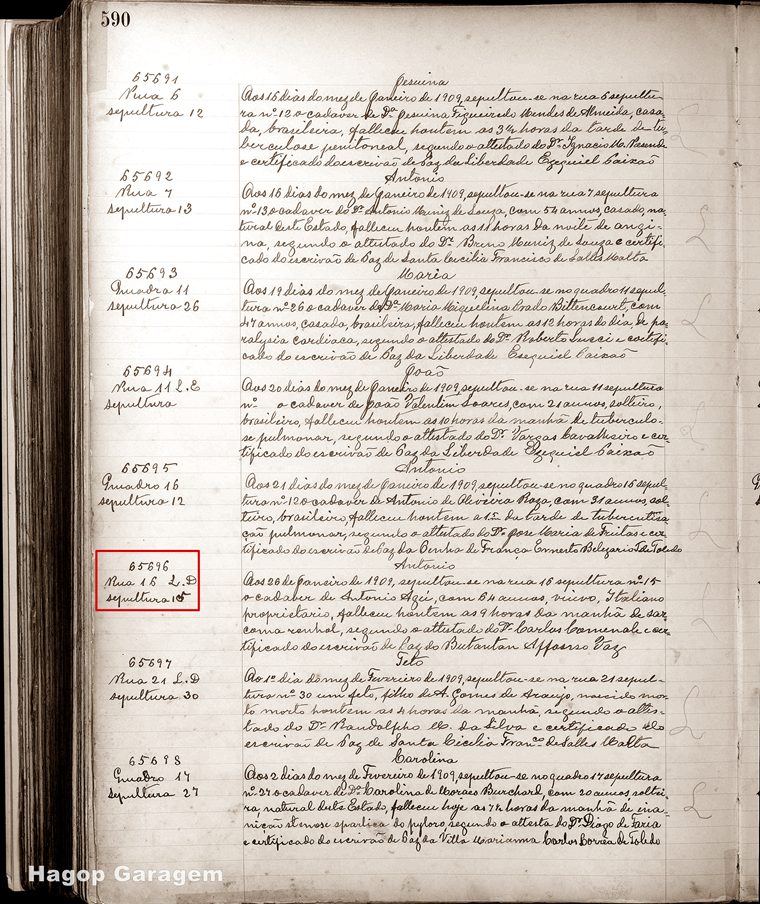 590
65691
Rua 6
sepultura 12
Jesuina
Aos 16 dias do mez de Janeiro de 1909, sepultou-se na rua 6 sepultu-
ra nº 12 o cadaver de Dª Jesuina Figueiredo Mendes de Almeida, casa-
da, brasileira, falleceu hontem as 3½ horas da tarde de tu-
berculose peritoneal, segundo o attestado do Dr. Ignacio M. Rezende
e certificado do escrivão de Paz da Liberdade Ezequiel Caixão
65692
Rua 7
sepultura 13
Antonio
Aos 16 dias do mez de Janeiro de 1909, sepultou-se na rua 7 sepultura
nº 13 o cadaver do Dr. Antonio Muniz de Souza, com 54 annos, casado, na-
tural deste Estado, falleceu hontem as 11 horas da noite de angi-
na, segundo o attestado do Dr. Breno Muniz de Souza e certifi-
cado do escrivão de Paz de Santa Cecilia Francisco de Salles Malta
65693
Quadra 11
sepultura 26
Maria
Aos 19 dias do mez de Janeiro de 1909, sepultou-se no quadro 11 sepul-
tura nº 26 o cadaver de Dª Maria Miquelina Prado Bittencourt, com
47 annos, casada, brasileira, falleceu hontem as 12 horas do dia, de pa-
ralysia cardiaca, segundo o attestado do Dr. Roberto e certifi-
cado do escrivão de Paz da Liberdade Ezequiel Caixão
65694
Rua 11 L.E
sepultura
João
Aos 20 dias do mez de Janeiro de 1909, sepultou-se na rua 11 sepultura
nº o cadaver de João Valentim Soares, com 21 annos, solteiro,
brasileiro, falleceu hontem as 10 horas da manhã de tuberculo-
se pulmonar, segundo o attestado do Dr. Vargas Cavalheiro e cer-
tificado do escrivão de Paz da Liberdade Ezequiel Caixão
65695
Quadro 16
sepultura 12
Antonio
Aos 21 dias do mez de Janeiro de 1909, sepultou-se no quadro 16 sepul-
tura nº 12 o cadaver de Antonio de Oliveira Roza, com 31 annos, sol-
teiro, brasileiro, falleceu hontem a 1 da tarde de tuberculisa-
ção pulmonar, segundo o attestado do Dr. Jose Maria de Freitas e cer-
tificado do escrivão de Paz da Penha de França Ernesto Belizario T. de Toledo
65696
Rua 16 L.D
sepultura 15
Antonio
Aos 26 de Janeiro de 1909, sepultou-se na rua 16 sepultura nº 15
o cadaver de Antonio Agú, com 64 annos, viuvo, Italiano
proprietario, falleceu hontem as 9 horas da manhã de sar-
coma renhol, segundo o attestado do Dr. Carlos Comenale e cer-
tificado do escrivão de Paz do Butantan Affonso Vaz
65697
Rua 21 L.D
sepultura 30
Feto
Ao 1º dia do mez de Fevereiro de 1909, sepultou-se na rua 21 sepul-
tura nº 30 um feto, filho de A. Gomes de Araujo, nascido mor-
to morto hontem as 4 horas da manhã, segundo o attes-
tado do Dr. Randolpho M. da Silva e certificado do
escrivão de Paz de Santa Cecilia Franco de Salles Malta
65698
Quadro 17
sepultura 27
Carolina
Aos 2 dias do mez de Fevereiro de 1909, sepultou-se no quadro 17 sepultura
nº 27 o cadaver de Dª Carolina de Moraes Burchard, com 20 annos soltei-
ra, natural deste Estado, falleceu hoje as 7½ horas da manhã de ina-
nição stenose do pyloro, segundo o attesta do Dr. Diogo de Faria
e certificado do escrivão de Paz da Villa Marianna Carlos Corrêa de Toledo
Hagop Garagem